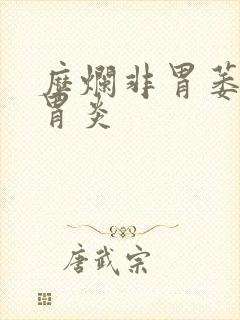 糜爛非胃萎
胃炎
唐武宗